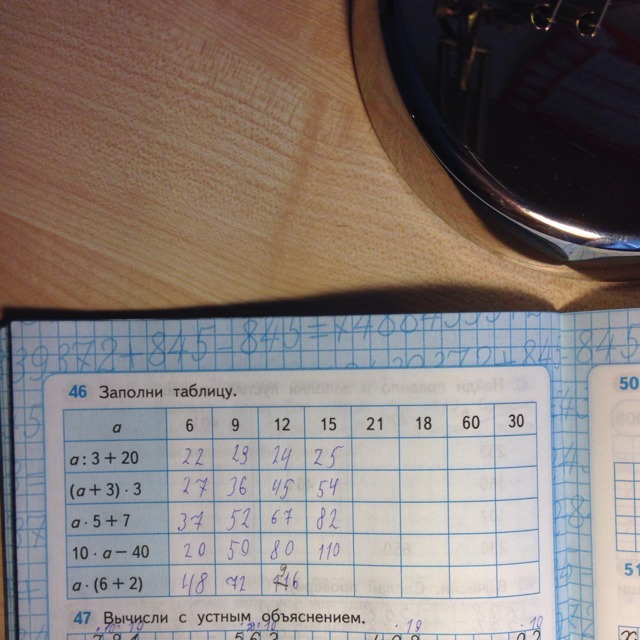 46 Заполни таблицу.
a 6 9 12 15 21 18 60 30
a : 3 + 20 22 23 24 25
(a + 3) · 3 27 36 45 54
a · 5 + 7 37 52 67 82
10 · a − 40 20 50 80 110
a · (6 + 2) 48 72
47 Вычисли с устным объяснением.
50
51